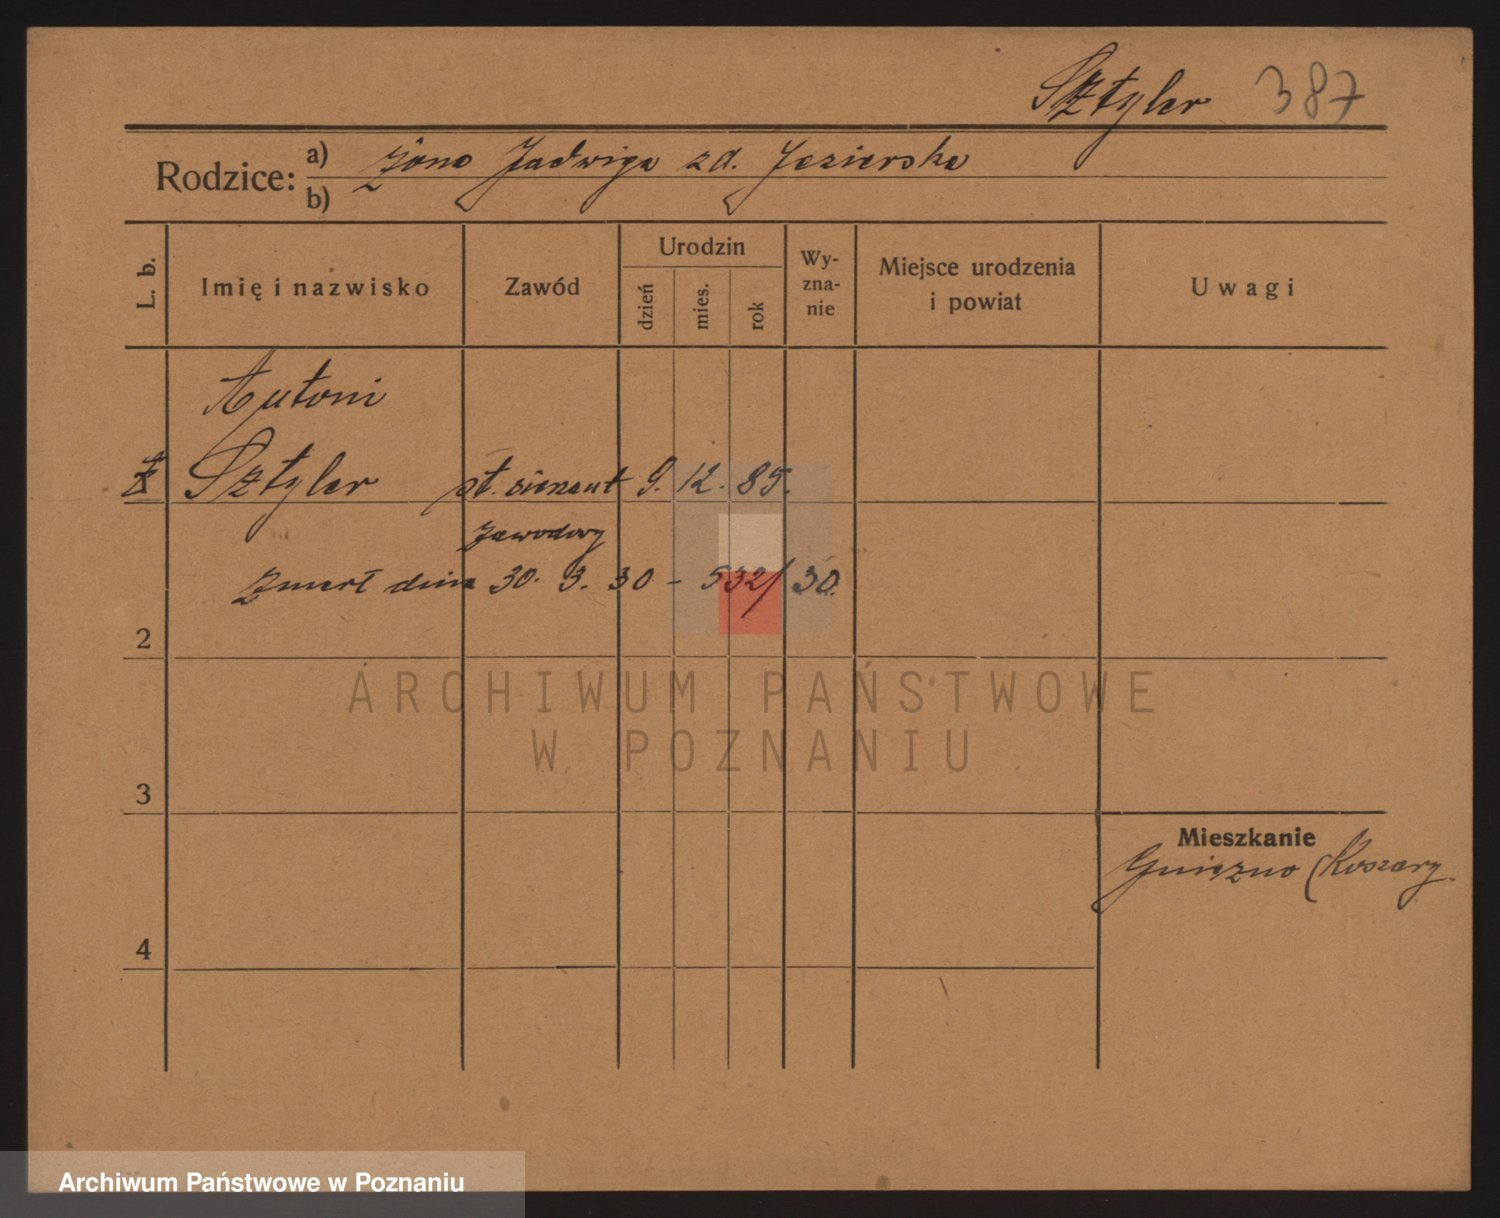 Sztyler 387
Rodzice: a) żona Jadwiga zd. Jezierska
b)
L. b.
Imię i nazwisko
Zawód
Urodzin
dzień
mies.
rok
Wy-
zna-
nie
Miejsce urodzenia
i powiat
Uwagi
Antoni
Sztyler st. sierżant 9. 12. 85.
zawodowy
Zmarł dnia 30. 3. 30 - 532/30.
2
ARCHIWUM PAŃSTWOWE
W POZNANIU
3
Mieszkanie
Gniezno (Koszary.
4
Archiwum Państwowe w Poznaniu